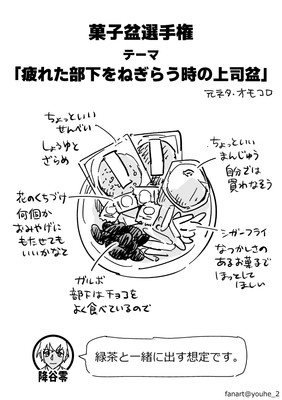 菓子盆選手権
テーマ
「疲れた部下をねぎらう時の上司盆」
元ネタ・オモコロ
ちょっといい
せんべい
しょうゆと
ざらめ
ちょっといい
まんじゅう
自分では
買わなそう
花のくちづけ
何個か
おみやげに
もたせても
いいかなと
シガーフライ
なつかしさの
あるお菓子で
ほっとして
ほしい
ガルボ
部下はチョコを
よく食べているので
降谷零
緑茶と一緒に出す想定です。
fanart@youhe_2